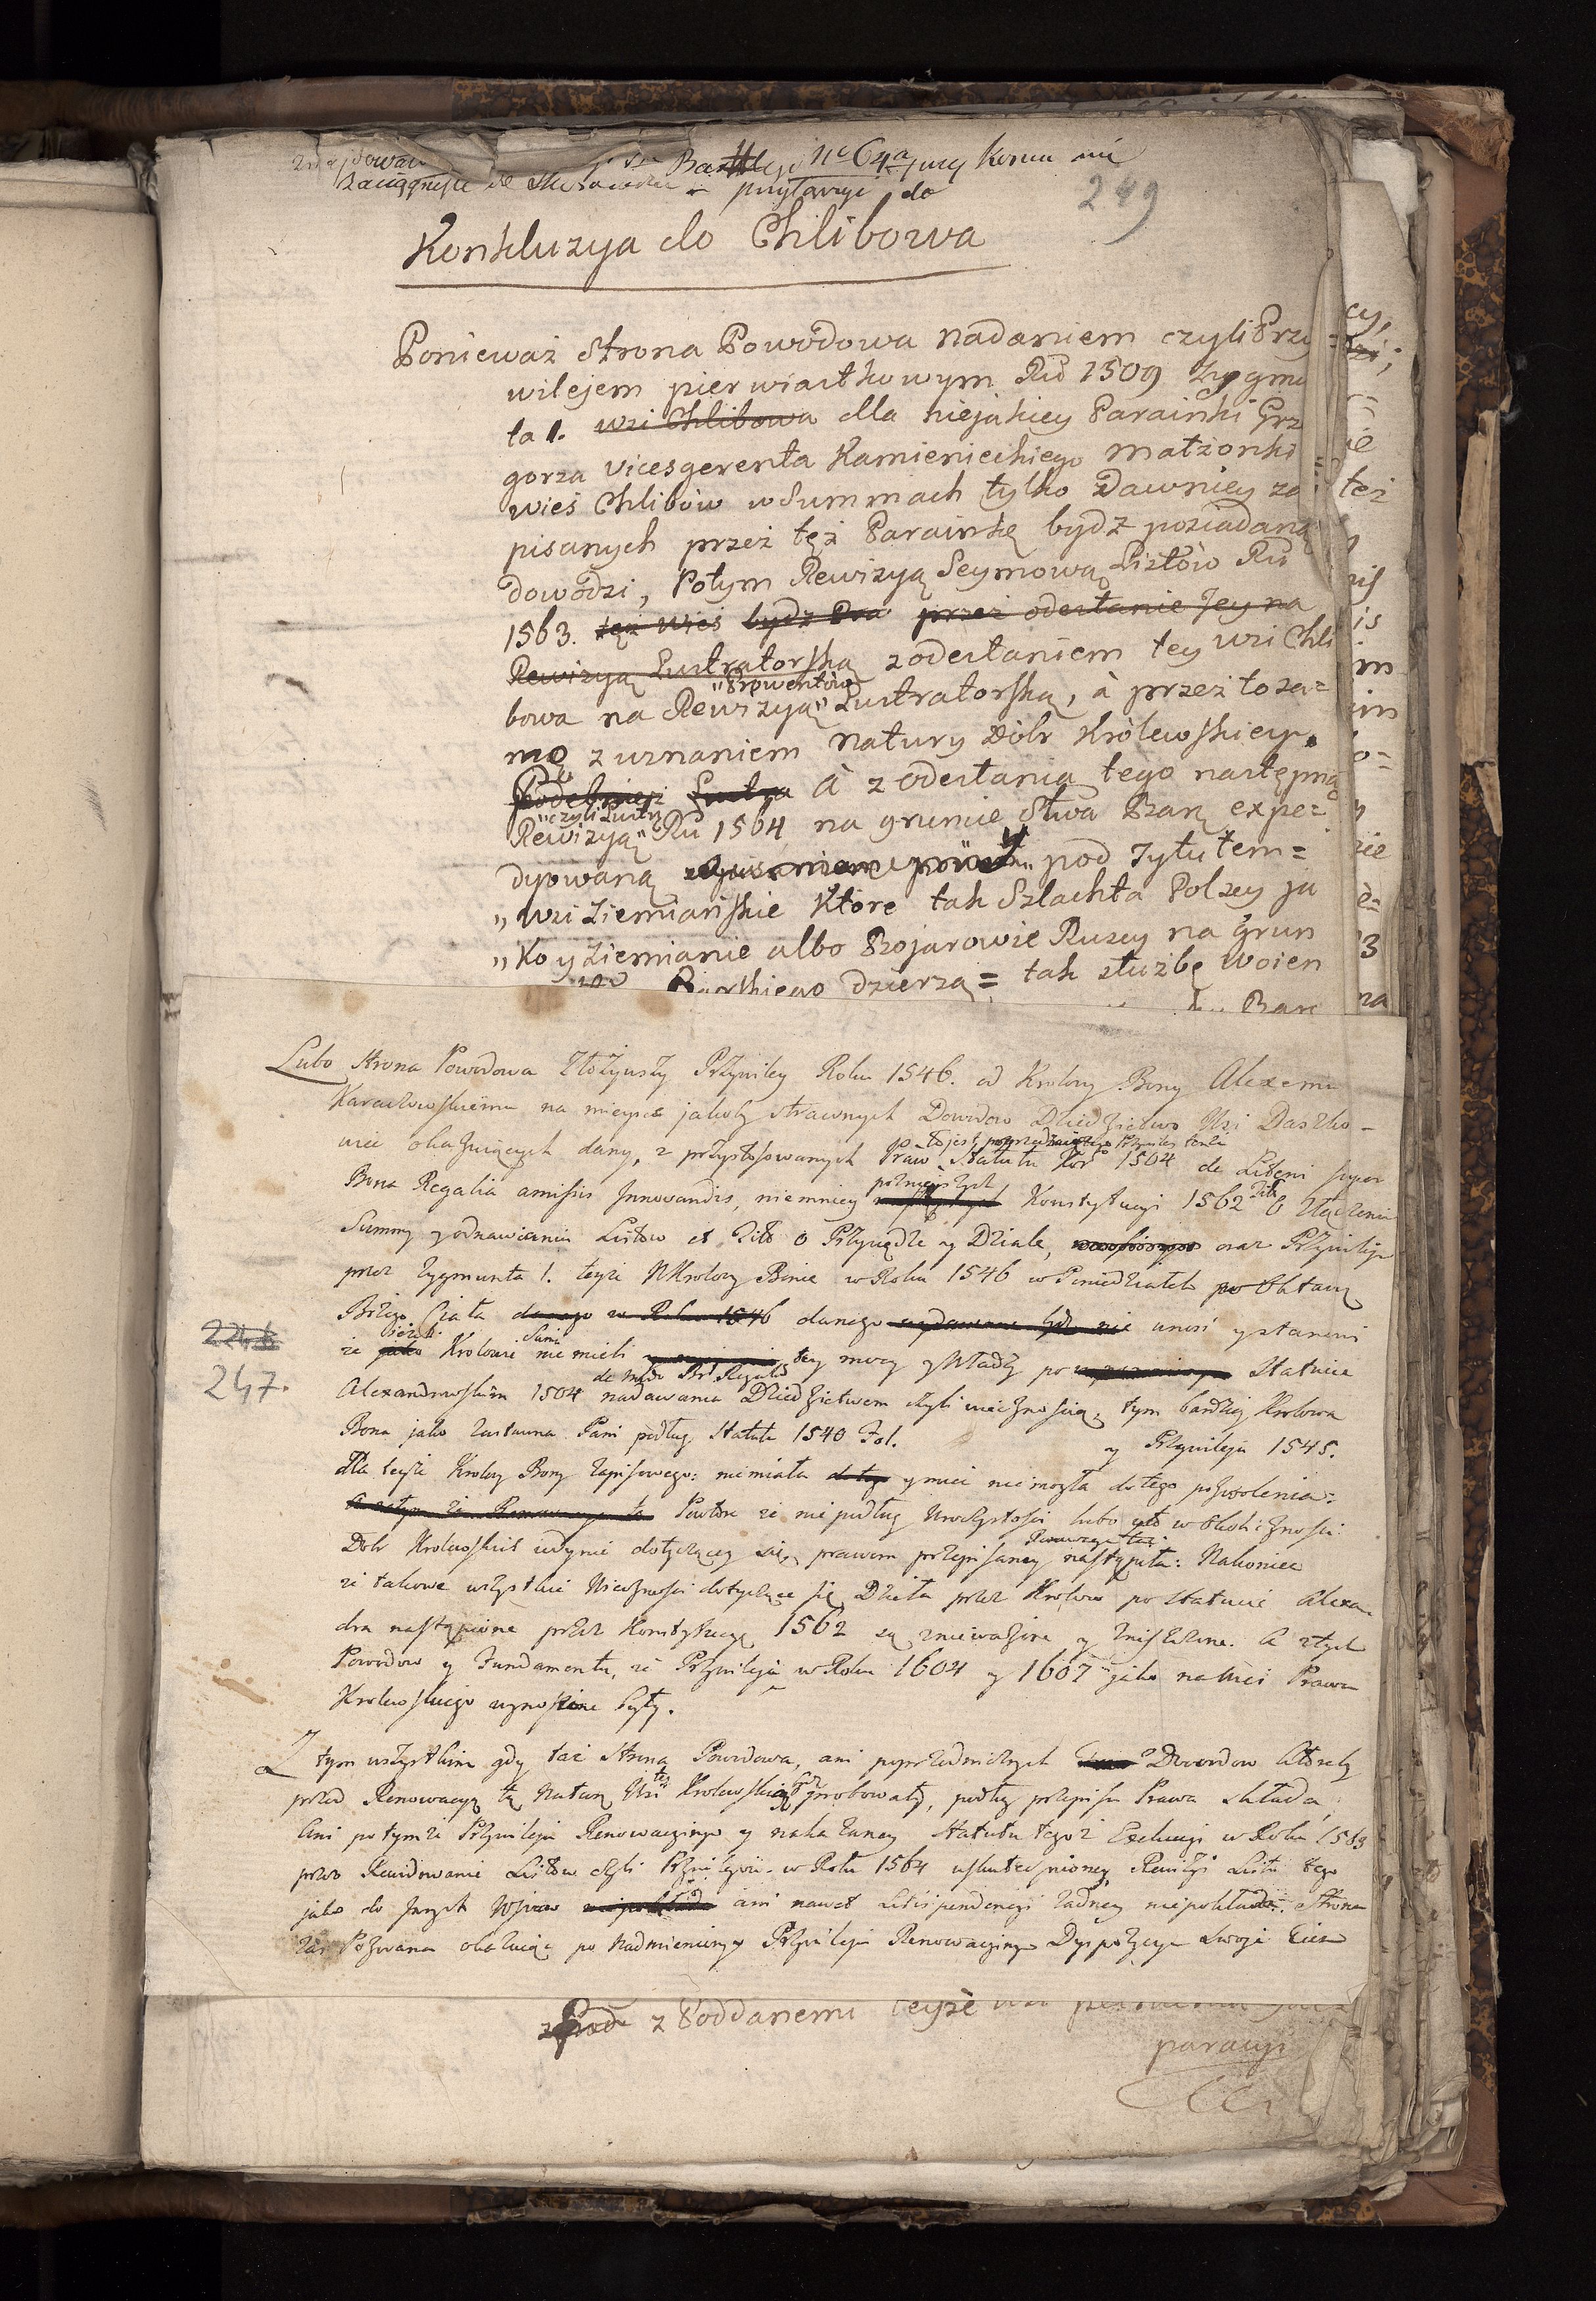 249
przyłączyć do
Konkluzya do Chlibowa
Ponieważ Strona Powodowa nadaniem czyli Przy
wilejem pierwiastkowym Ru 1509 Zygmu
ta 1. wsi Chlibowa dla niejakiey Parainki Grz
gorza vicesgerenta Kamienieckiego małżonki
wieś Chlibów w Summach tylko Dawniey za
pisanych przeż tęż Parainkę bydz posiadaną
dowodzi, Potym Rewizyą Seymową Listów Ru
1563. tęż wieś bydz przeż odesłanie Jey na
Rewizyą Lustratorską z odesłaniem tey wsi Chli
"Prowentów
bowa na Rewizyą" Lustratorską, à przeż to sa=
mo z uznaniem natury Dóbr Królewskiey.
à z odesłania tego następną
"czyli Lustr
Rewizyą" Ru 1564 na gruncie Stwa Bar expe=
dyowaną pod Tytułem=
" wsi Ziemiańskie Które tak Szlachta Polscy ja
" Ko y Ziemianie albo Bojarowie Ruscy na Grun
Barskiego Dzierzą= tak służbę woien
Bar
Lubo Strona Powodowa złożywszy Przywiley Roku 1546. od Krolowy Bony Alexemu
Karaczowskiemu na mieysce jakoby strawnych Dowodow Dziedzictwo Wsi Daszko-
wiec okazuiących dany, z przystosowanych Praw Statutu 1504 de Litteris super
Bona Regalia amissis Innovandis, niemniey Konstytucyi 1562 Titt O złączeniu
pożnieyszych
Summy y odnawianiu Listow et Titt O Przysiędze y Dziale, oraz Przywileju
przez Zygmunta 1. teyże Krolowy Bonie w Roku 1546 w Poniedziałek po Oktawie
Bożego Ciała danego w Roku 1546 danego wnosi y stanowi
że Krolowie nie mieli tey mocy y Władzy po Statucie
Alexandrowskim 1504 nadawania Dziedzictwem czyli wiecznością, tym bardziey Krolowa
Bona jako zastawna Pani podług Statutu 1540 Fol. y Przywileju 1545.
dla teyże Krolowy Bony zapisowego: nie miała y mieć nie mogła do tego pozwolenia:
Powtore że nie podług Uroczystości lubo w Okoliczności
Dobr Krolewskich iedynie dotyczącey się, prawem przepisaney nastąpiła: Nakoniec
że takowe wszystkie Wieczności dotyczące się Dzieła przez Krolow po Statucie Alexan-
dra nastąpione przez Konstytucyę 1562 są zniewazone y zniszczone. A z tych
Powodow y Fundamentu, że Przywileja w Roku 1604 y 1607 jako na Wieś Prawa
Krolewskiego wynoszone były.
Z tym wszystkim gdy taż Strona Powodowa, ani poprzedniczych Dowodow ktoreby
przed Renowacyą tę Naturę Wsi Krolewską probowały, podług przepisu Prawa składa,
Ani po tymże Przywileju Renowacyinym y nakazaney Statutu tegoż Exekucyi w Roku 1563
przez Rewidowanie Listow czyli Przywilejow w Roku 1564 uskutecznioney Rewizyi Listu tego
jako do Innych Wsiow ani nawet Litispendencyi żadney niepokłada. Strona
zaś Pozwana okazuiąc po Nadmienionym Przywileju Renowacyinym Dyspozycye Swoje
2248
247.
z Poddanemi teyże wsi